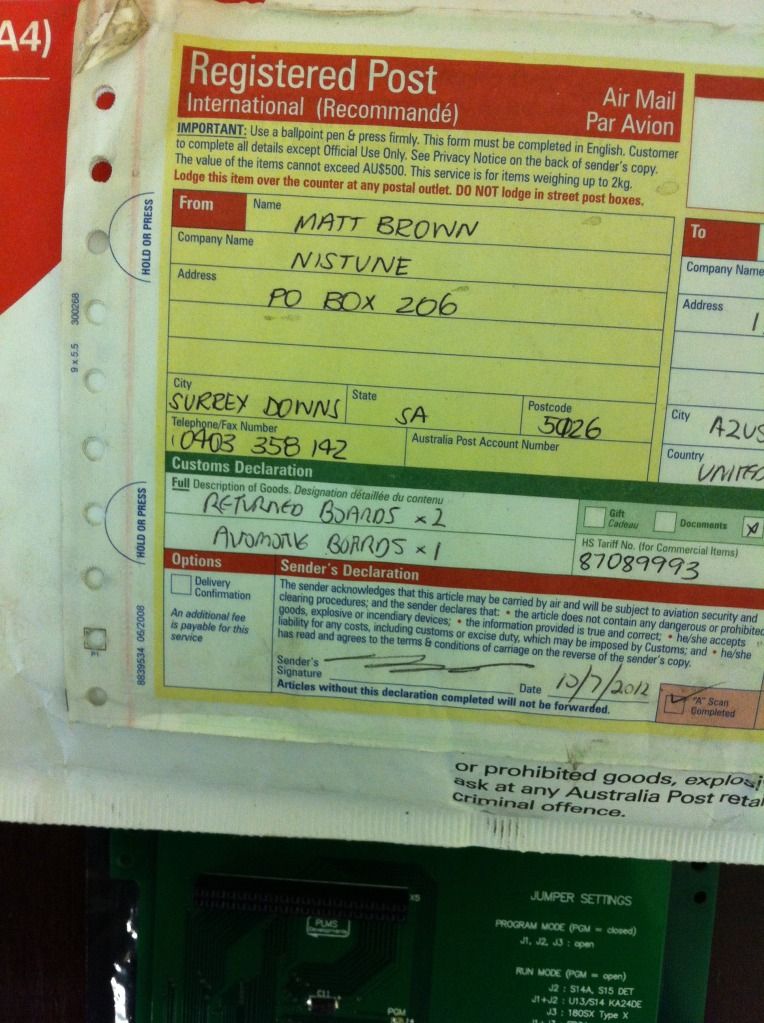 A4)
Registered Post
International (Recommandé)
Air Mail
Par Avion
IMPORTANT: Use a ballpoint pen & press firmly. This form must be completed in English. Customer
to complete all details except Official Use Only. See Privacy Notice on the back of sender's copy.
The value of the items cannot exceed AU$500. This service is for items weighing up to 2kg.
Lodge this item over the counter at any postal outlet. DO NOT lodge in street post boxes.
From
Name
MATT BROWN
Company Name
NISTUNE
Address
PO BOX 206
City
SURREY DOWNS
State
SA
Postcode
5126
Telephone/Fax Number
0403 358 142
Australia Post Account Number
To
Company Name
Address
1
City
AZUS
Country
UNITED
HOLD OR PRESS
9 x 5.5 300268
HOLD OR PRESS
8839534 06/2008
Customs Declaration
Full Description of Goods. Designation détaillée du contenu
RETURNED BOARDS x 2
BOARDS x 1
Gift
Cadeau
Documents
HS Tariff No. (for Commercial Items)
87089993
Options
Delivery
Confirmation
An additional fee
is payable for this
service
Sender's Declaration
The sender acknowledges that this article may be carried by air and will be subject to aviation security and
clearing procedures; and the sender declares that: • the article does not contain any dangerous or prohibited
goods, explosive or incendiary devices; • the information provided is true and correct; • he/she accepts
liability for any costs, including customs or excise duty, which may be imposed by Customs; and • he/she
has read and agrees to the terms & conditions of carriage on the reverse of the sender's copy.
Sender's
Signature
Date
10/7/2012
Articles without this declaration completed will not be forwarded.
"A" Scan
Completed
or prohibited goods, explosi
ask at any Australia Post reta
criminal offence.
X5
PLMS
Developments
C11
PGM
JUMPER SETTINGS
PROGRAM MODE (PGM = closed)
J1, J2, J3 : open
RUN MODE (PGM = open)
J2 : S14A, S15 DET
J1+J2 : U13/S14 KA24DE
J3 : 180SX Type X